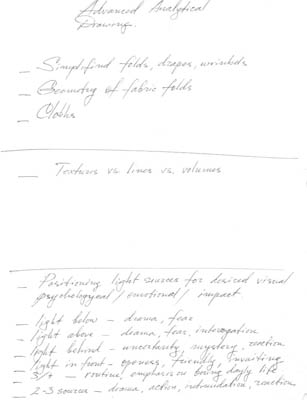 Advanced Analytical
Drawing.
— Simplified folds, drapes,
— Geometry of fabric folds
— Cloths
— Textures vs. lines vs. volumes
— Positioning light sources for desired visual
psychological / emotional / impact
— light below – drama, fear
— light above – drama, fear, interrogation
— light behind – uncertainty, mystery, reaction
— light in front – openness, friendly, inviting
— 3/4 – routine, emphasis on boring dayly life
— 2-3 sources – drama, action, reaction